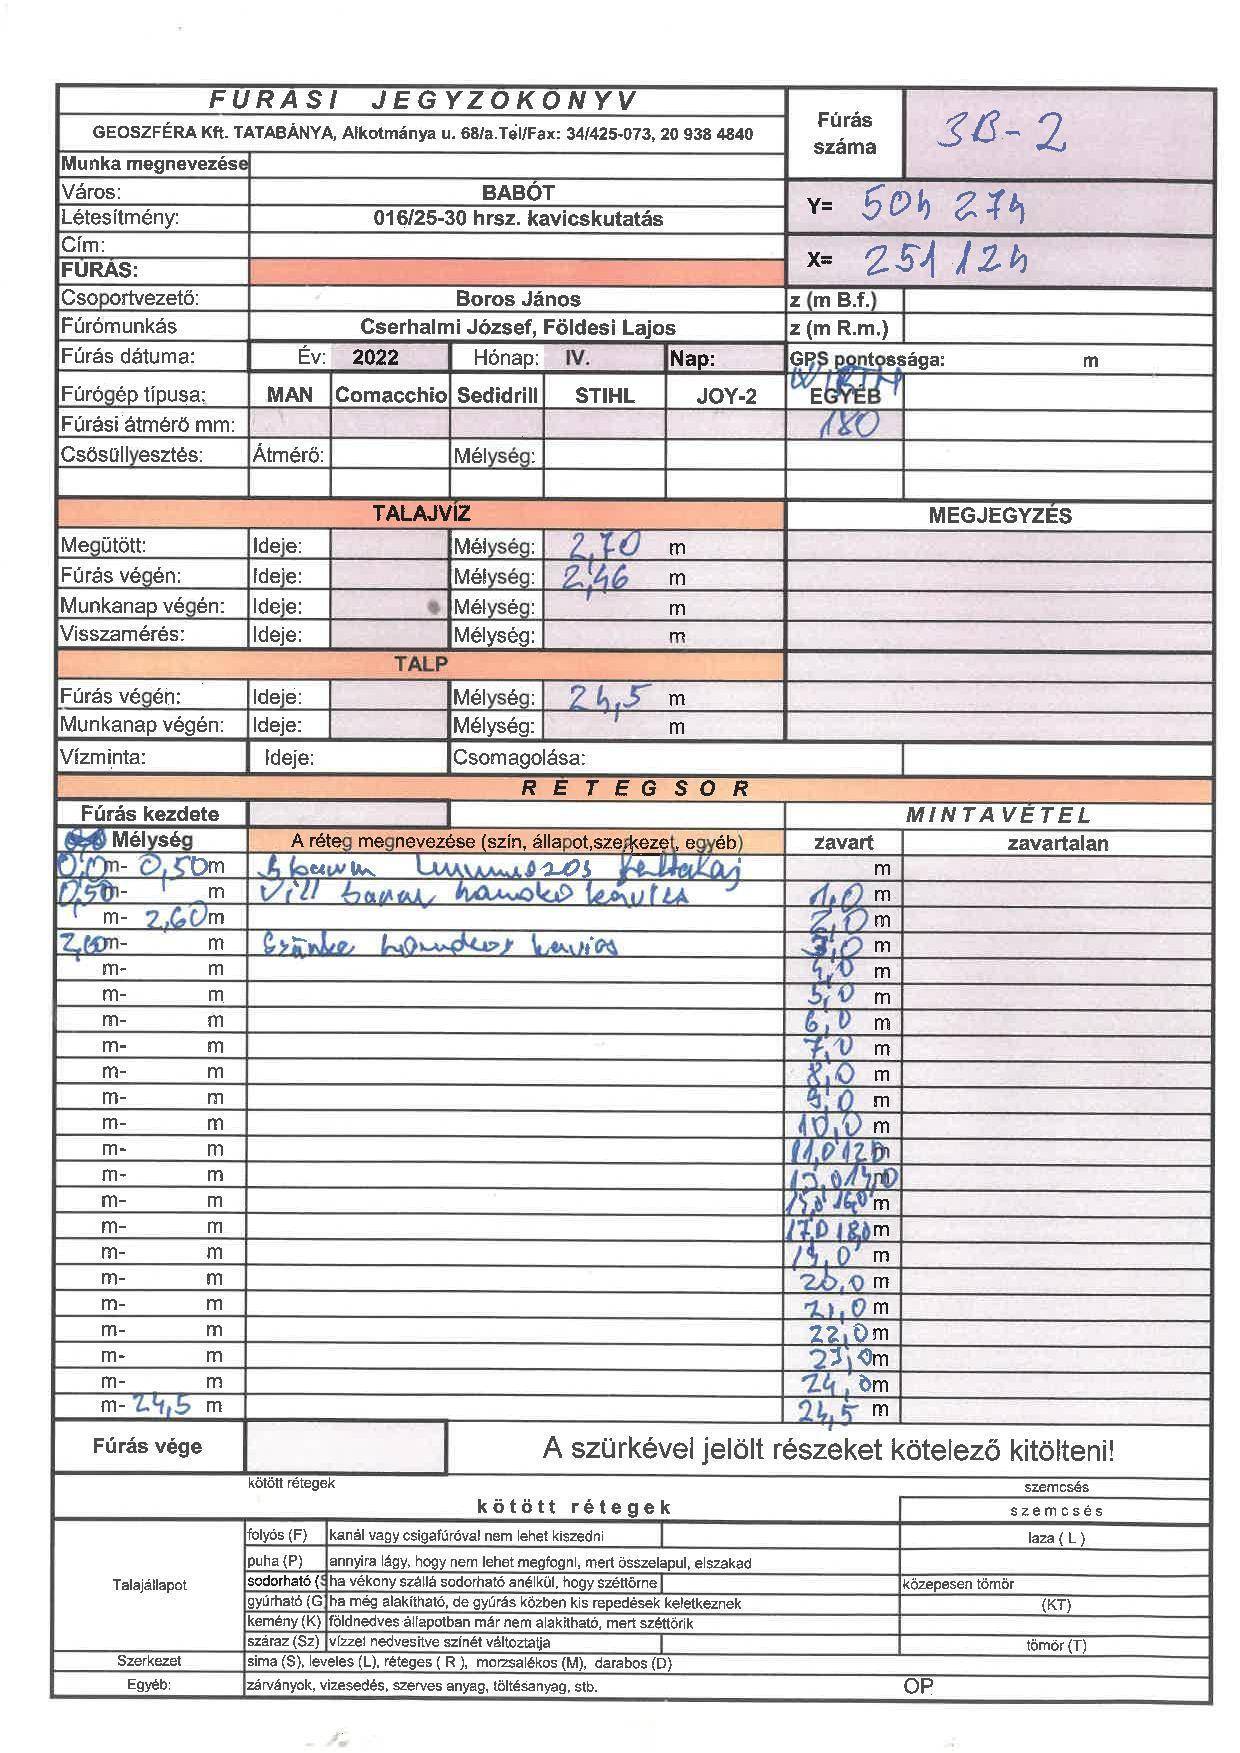 FÚRÁSI JEGYZŐKÖNYV
GEOSZFÉRA Kft. TATABÁNYA, Alkotmánya u. 68/a.Tel/Fax: 34/425-073, 20 938 4840
Fúrás száma 3B-2
Munka megnevezése
Város: BABÓT
Y= 504 274
Létesítmény: 016/25-30 hrsz. kavicskutatás
Cím:
X= 251 124
FÚRÁS:
Csoportvezető: Boros János z (m B.f.)
Fúrómunkás Cserhalmi József, Földesi Lajos z (m R.m.)
Fúrás dátuma: Év: 2022 Hónap: IV. Nap: GPS pontossága: m
Fúrógép típusa: MAN Comacchio Sedidrill STIHL JOY-2 EGYÉB WIRTH
Fúrási átmérő mm: 180
Csősüllyesztés: Átmérő: Mélység:
TALAJVÍZ MEGJEGYZÉS
Megütött: Ideje: Mélység: 2,70 m
Fúrás végén: Ideje: Mélység: 2,46 m
Munkanap végén: Ideje: Mélység: m
Visszamérés: Ideje: Mélység: m
TALP
Fúrás végén: Ideje: Mélység: 24,5 m
Munkanap végén: Ideje: Mélység: m
Vízminta: Ideje: Csomagolása:
RÉTEGSOR
Fúrás kezdete MINTAVÉTEL
Mélység A réteg megnevezése (szín, állapot,szerkezet, egyéb) zavart zavartalan
0,0 m- 0,50 m humuszos feltalaj m
0,50 m- m Vill barna homokos kavics 1,0 m
m- 2,60 m 2,0 m
2,60 m- m Szürke homokos kavics 3,0 m
m- m 4,0 m
m- m 5,0 m
m- m 6,0 m
m- m 7,0 m
m- m 8,0 m
m- m 9,0 m
m- m 10,0 m
m- m 11,0 12,0 m
m- m 13,0 14,0 m
m- m 15,0 16,0 m
m- m 17,0 18,0 m
m- m 19,0 m
m- m 20,0 m
m- m 21,0 m
m- m 22,0 m
m- m 23,0 m
m- m 24,0 m
m- 24,5 m 24,5 m
Fúrás vége A szürkével jelölt részeket kötelező kitölteni!
kötött rétegek szemcsés
kötött rétegek szemcsés
Talajállapot
folyós (F) kanál vagy csigafúróval nem lehet kiszedni laza ( L )
puha (P) annyira lágy, hogy nem lehet megfogni, mert összelapul, elszakad
sodorható (S ha vékony szállá sodorható anélkül, hogy széttörne közepesen tömör
gyúrható (G ha még alakítható, de gyúrás közben kis repedések keletkeznek (KT)
kemény (K) földnedves állapotban már nem alakítható, mert széttörik
száraz (Sz) vízzel nedvesítve színét változtatja tömör (T)
Szerkezet sima (S), leveles (L), réteges ( R ), morzsalékos (M), darabos (D)
Egyéb: zárványok, vizesedés, szerves anyag, töltésanyag, stb. OP